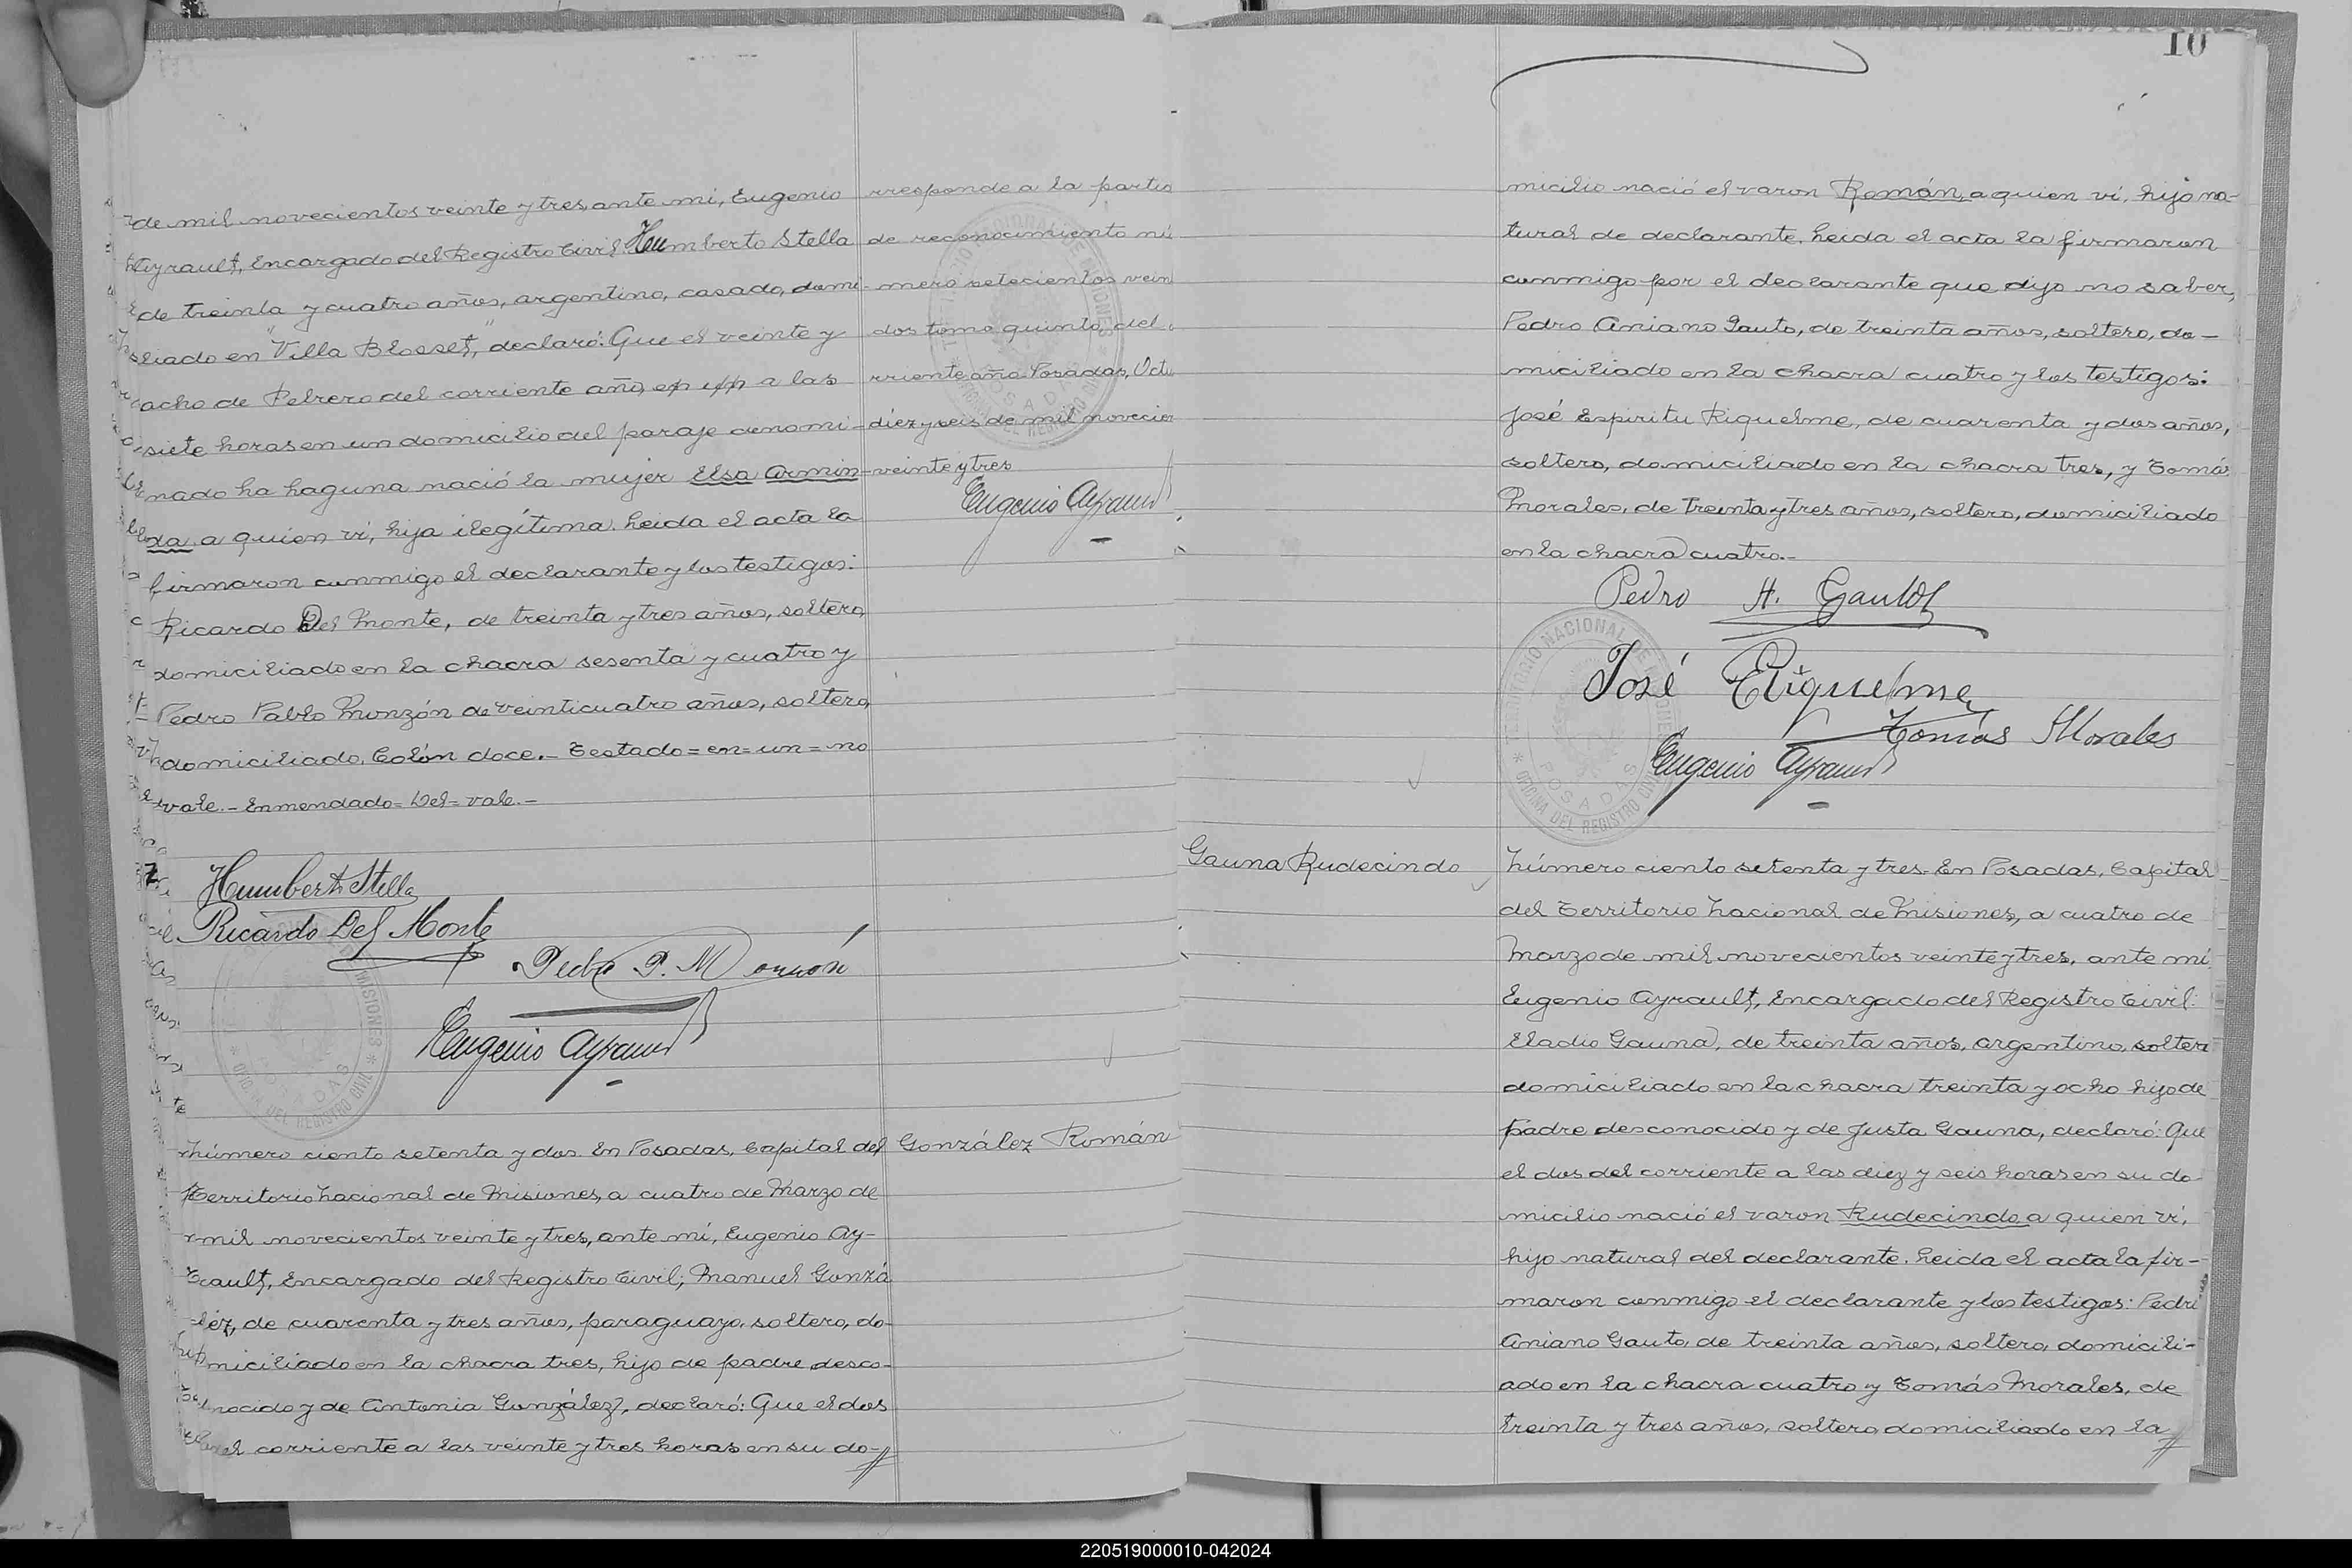 de mil novecientos veinte y tres, ante mi, Eugenio
Ayrault, Encargado del Registro Civil. Humberto Stella
de treinta y cuatro años, argentino, casado, domi-
ciliado en "Villa Blosset," declaró: Que el veinte y
ocho de Febrero del corriente año, en un a las
siete horas en un domicilio del paraje denomi-
nado La Laguna nació la mujer Elsa Armin-
da a quien vi, hija ilegítima. Leida el acta la
firmaron conmigo el declarante y los testigos:
Ricardo Del Monte, de treinta y tres años, soltero,
domiciliado en la chacra sesenta y cuatro y
Pedro Pablo Monzón de veinticuatro años, soltero,
domiciliado, Colón doce.- Testado=en=un=no
vale.- Enmendado=Del=vale.-
Humberto Stella
Ricardo Del Monte
Pedro P. Monzón
Eugenio Ayrault
rresponde a la partid
de reconocimiento nú
mero setecientos vein
dos tomo quinto, del c
rriente año. Posadas, Octu
diez y seis de mil novecien
veinte y tres
Eugenio Ayrault
TERRITORIO NACIONAL DE MISIONES
* OFICINA DEL REGISTRO CIVIL *
POSADAS
González Román
Número ciento setenta y dos. En Posadas, Capital del
Territorio Nacional de Misiones, a cuatro de Marzo de
mil novecientos veinte y tres, ante mí, Eugenio Ay-
rault, Encargado del Registro Civil; Manuel Gonzá
lez, de cuarenta y tres años, paraguayo, soltero, do-
miciliado en la chacra tres, hijo de padre desco-
nocido y de Antonia González, declaró: Que el dos
del corriente a las veinte y tres horas en su do-//
10
micilio nació el varon Román, a quien vi, hijo na-
tural de declarante. Leida el acta la firmaron
conmigo por el declarante que dijo no saber,
Pedro Aniano Gauto, de treinta años, soltero, do-
miciliado en la chacra cuatro y los testigos:
José Espiritu Riquelme, de cuarenta y dos años,
soltero, domiciliado en la chacra tres, y Tomás
Morales, de treinta y tres años, soltero, domiciliado
en la chacra cuatro.-
Pedro A. Gauto
José Riquelme
Tomás Morales
Eugenio Ayrault
TERRITORIO NACIONAL DE MISIONES
* OFICINA DEL REGISTRO CIVIL *
POSADAS
Gauna Rudecindo
Número ciento setenta y tres. En Posadas, Capital
del Territorio Nacional de Misiones, a cuatro de
Marzo de mil novecientos veinte y tres, ante mí,
Eugenio Ayrault, Encargado del Registro Civil:
Eladio Gauna, de treinta años, argentino, soltero
domiciliado en la chacra treinta y ocho hijo de
padre desconocido y de Justa Gauna, declaró: Que
el dos del corriente a las diez y seis horas en su do-
micilio nació el varon Rudecindo a quien vi,
hijo natural del declarante. Leida el acta la fir-
maron conmigo el declarante y los testigos: Pedro
Aniano Gauto, de treinta años, soltero, domicili-
ado en la chacra cuatro y Tomás Morales, de
treinta y tres años, soltero domiciliado en la//
220519000010-042024